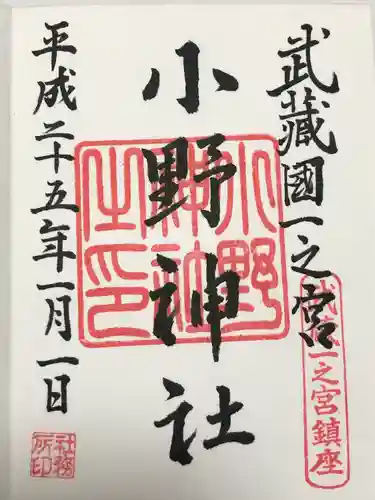 武蔵國一之宮
武蔵一之宮鎮座
小野神社
小野神社之印
平成二十五年一月一日
社務所印